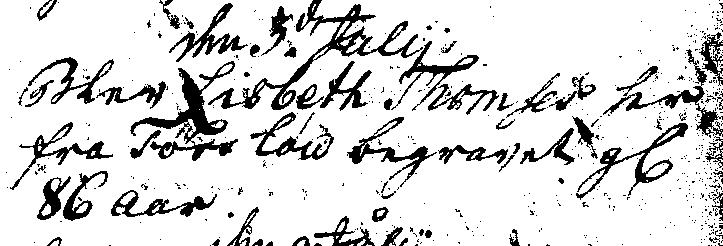 den 3.d Julij.
Blev Lisbeth Thomses her
fra Førsløw begravet. gl
86 aar.